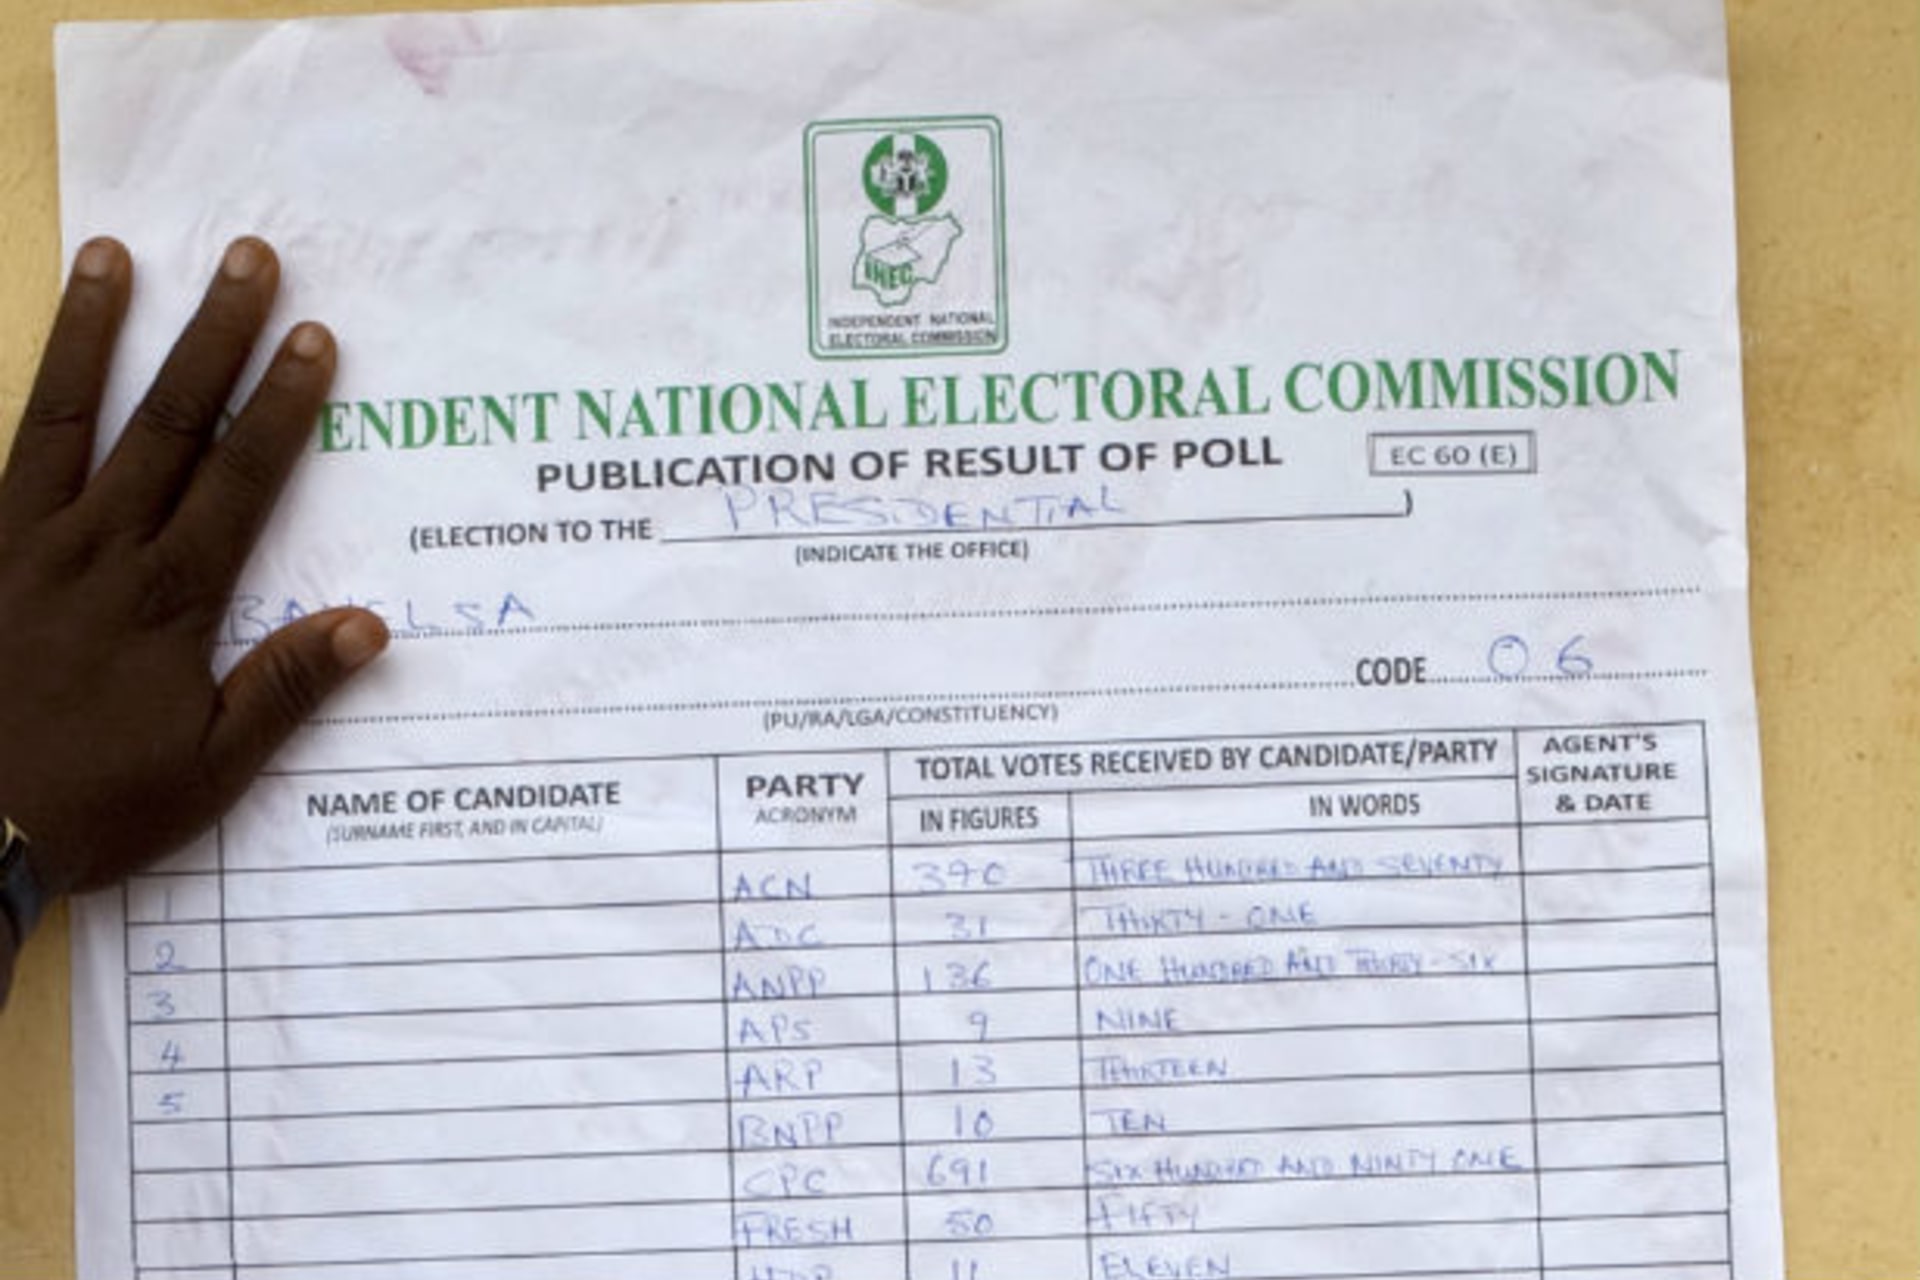 INEC
INDEPENDENT NATIONAL
ELECTORAL COMMISSION
ENDENT NATIONAL ELECTORAL COMMISSION
PUBLICATION OF RESULT OF POLL EC 60 (E)
(ELECTION TO THE PRESIDENTIAL )
(INDICATE THE OFFICE)
CODE 06
(PU/RA/LGA/CONSTITUENCY)
NAME OF CANDIDATE PARTY TOTAL VOTES RECEIVED BY CANDIDATE/PARTY AGENT'S
(SURNAME FIRST, AND IN CAPITAL) ACRONYM IN FIGURES IN WORDS SIGNATURE
& DATE
1 ACN 370 THREE HUNDRED AND SEVENTY
2 ADC 31 THIRTY - ONE
3 ANPP 136 ONE HUNDRED AND THIRTY - SIX
4 APS 9 NINE
5 ARP 13 THIRTEEN
BNPP 10 TEN
CPC 691 SIX HUNDRED AND NINTY ONE
FRESH 50 FIFTY
11 ELEVEN